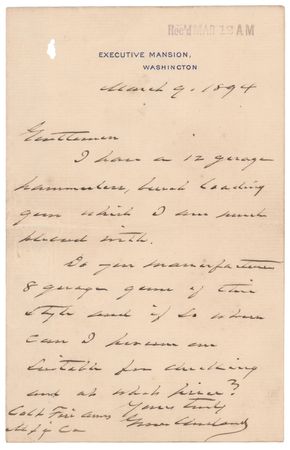 Rec'd MAR 12 AM
EXECUTIVE MANSION,
WASHINGTON
March 9. 1894
Gentlemen
I have a 12 guage
hammerless, breech loading
gun which I am much
pleased with.
Do you manufacture
8 guage guns of this
style and if so where
can I procure one
suitable for ducking
and at what price?
Yours truly
Grover Cleveland
Colt Fire Arms
M'f'g Co